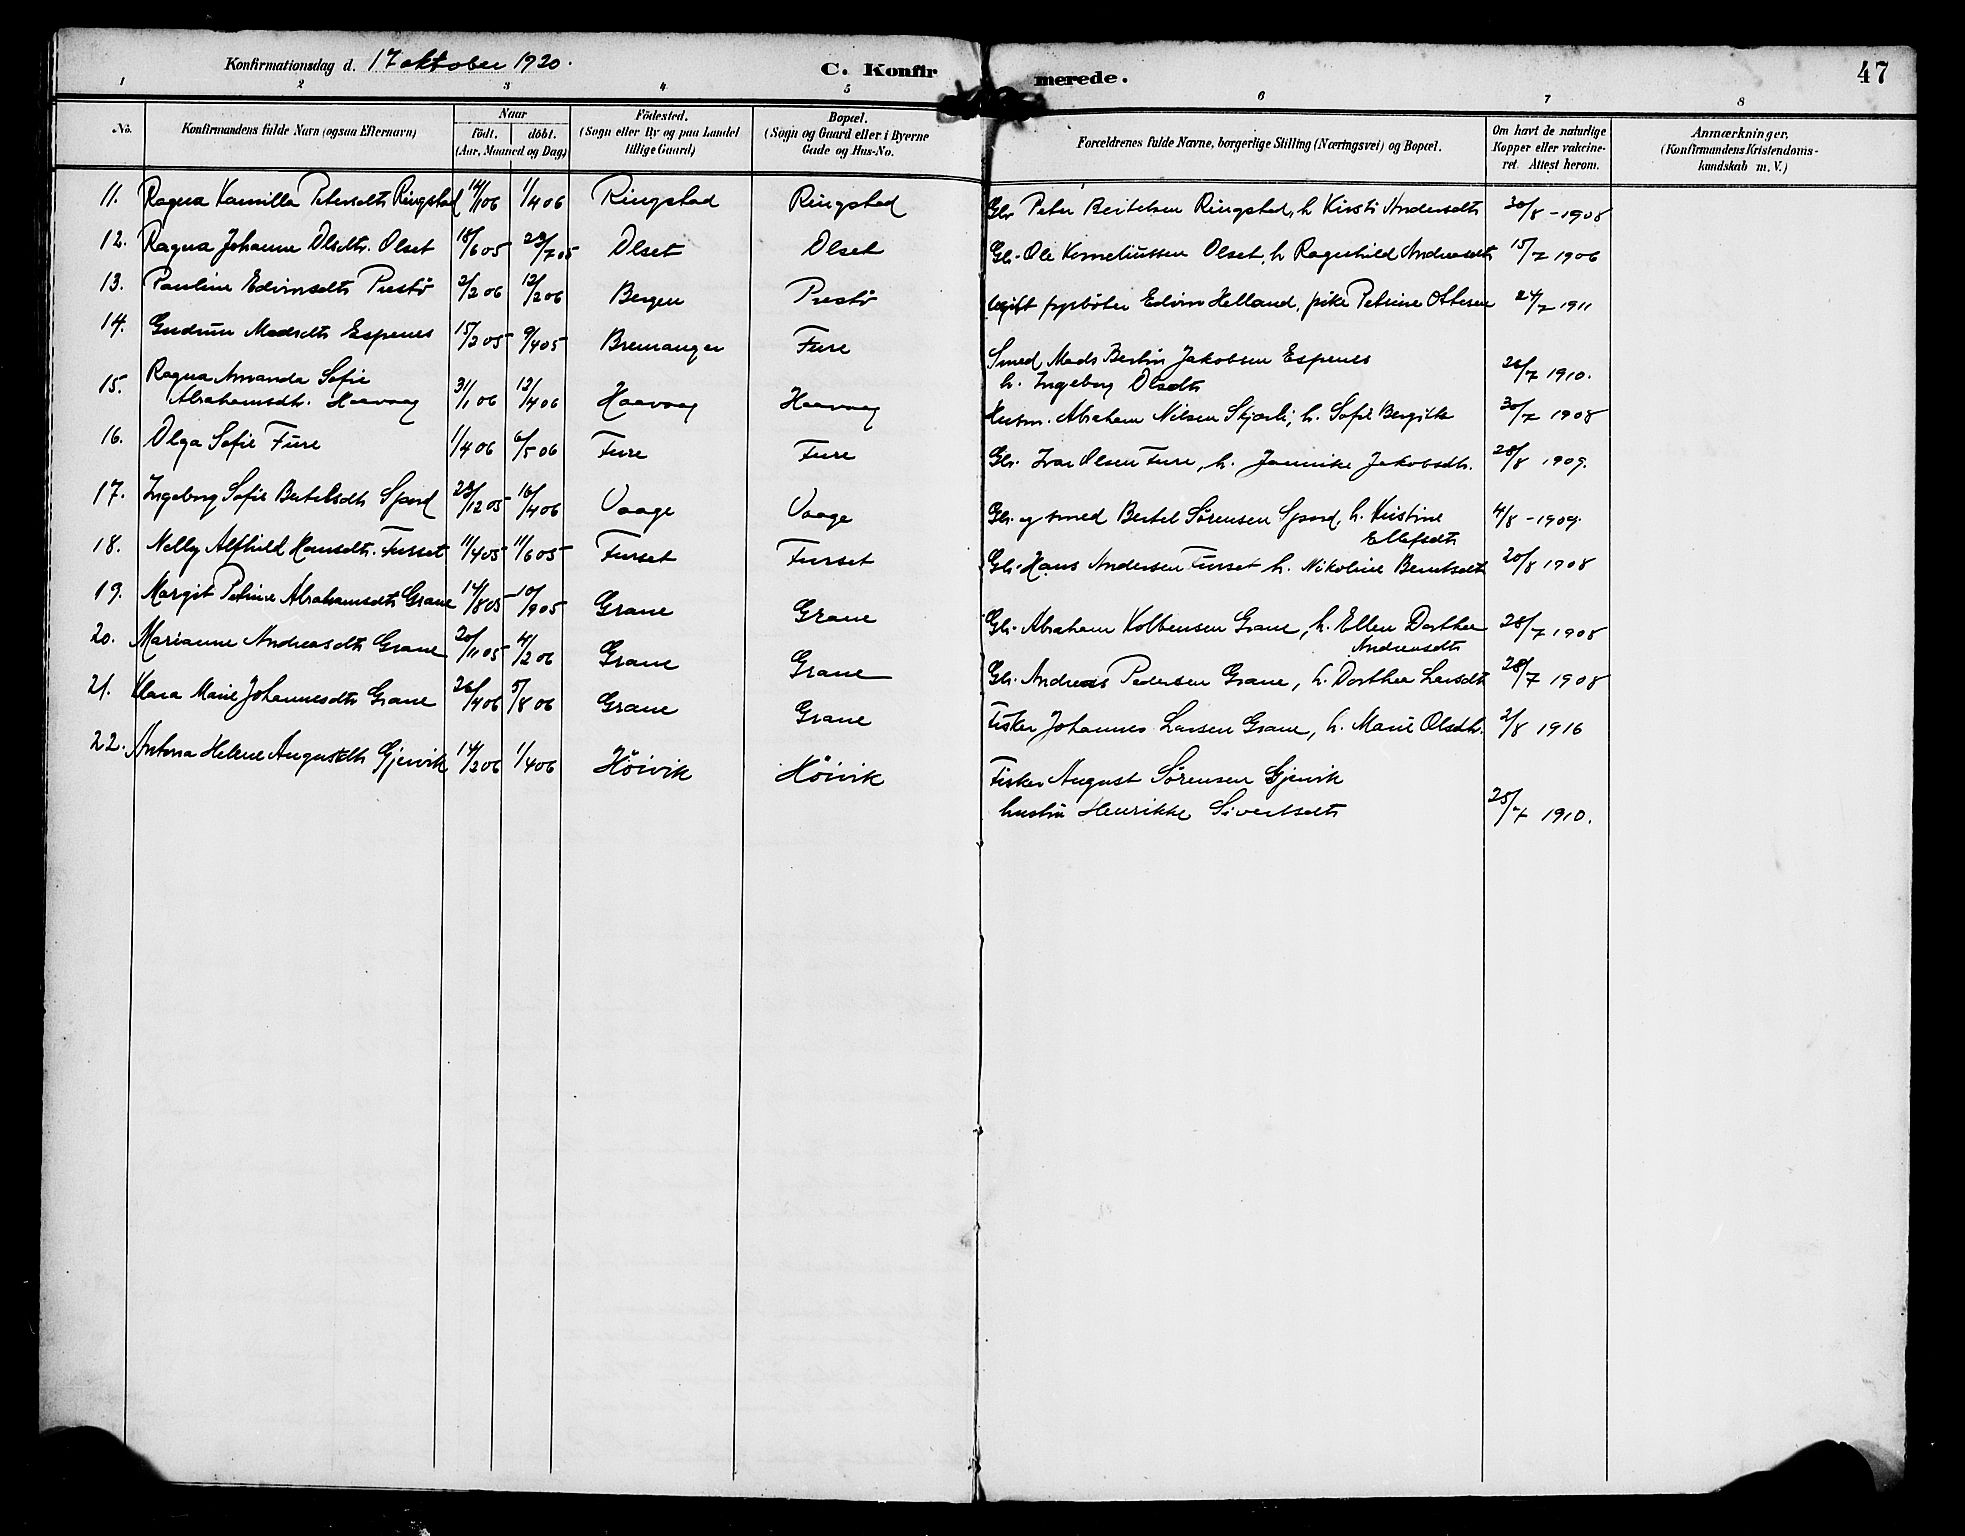 Konfirmationsdag d. 17 oktober 1920.
C. Konfirmerede.
47
1 2 3 4 5 6 7 8
No. Konfirmandens fulde Navn (ogsaa Efternavn) Naar født. døbt. (Aar, Maaned og Dag) Fødested. (Sogn eller By og paa Landet tillige Gaard) Bopæl. (Sogn og Gaard eller i Byerne Gade og Hus-No. Forældrenes fulde Navne, borgerlige Stilling (Næringsvei) og Bopæl. Om havt de naturlige Kopper eller vakcineret. Attest herom. Anmærkninger. (Konfirmandens Kristendomskundskab m. V.)
11. Ragna Kamilla Petersdtr Ringstad 14/1 06 1/4 06 Ringstad Ringstad Gbr. Peter Bertelsen Ringstad, h Kirsti Andersdtr 30/8 - 1908
12. Ragna Johanne Olsdtr. Olset 18/6 05 23/7 05 Olset Olset Gbr. Ole Korneliussen Olset, h Ragnhild Andreasdtr 15/7 1906
13. Pauline Edvinsdtr Prestø 2/2 06 12/2 06 Bergen Prestø ugift fyrbøter Edvin Helland, pike Petrine Ottesen 24/7 1911
14. Gudrun Madsdtr Espenes 15/2 05 9/4 05 Bremanger Fure Smed Mads Bertin Jakobsen Espenes
h. Ingeborg Olsdtr 26/7 1910.
15. Ragna Amanda Sofie
Abrahamsdtr. Haavaag 31/1 06 12/4 06 Haavaag Haavaag Husm. Abraham Nilsen Skjærli, h. Sofie Bergitte 30/7 1908
16. Olga Sofie Fure 1/4 06 6/5 06 Fure Fure Gbr. Ivar Olsen Fure, h. Jannike Jakobsdtr. 28/8 1909.
17. Ingeborg Sofie Bertelsdtr Spord 23/12 05 16/4 06 Vaage Vaage Gbr. og smed Bertel Sørensen Spord, h. Kristine
Ellefsdtr 4/8 - 1909.
18. Nelly Alfhild Hansdtr. Furset 11/4 05 11/6 05 Furset Furset Gbr. Hans Andersen Furset h. Nikoline Berntsdtr 20/8 1908
19. Margit Petrine Abrahamsdtr Grane 14/8 05 10/9 05 Grane Grane Gbr. Abraham Kolbensen Grane, h. Ellen Dorthea
Andreasdtr 28/7 1908
20. Marianne Andreasdtr Grane 20/11 05 4/2 06 Grane Grane Gbr. Andreas Pedersen Grane, h. Dorthea Larsdtr 28/7 1908
21. Klara Marie Johannesdtr Grane 26/4 06 5/8 06 Grane Grane Fisker Johannes Larsen Grane, h. Marie Olsdtr. 2/8 1916
22. Antona Helene Augustsdtr Gjervik 14/2 06 1/4 06 Høivik Høivik Fisker August Sørensen Gjervik
hustru Henrikke Sivertsdtr 25/7 1910.